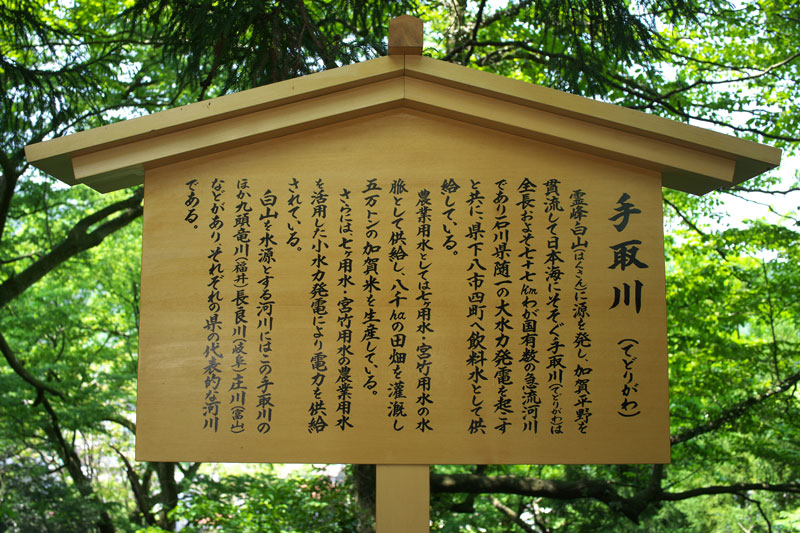 手取川（てどりがわ）
霊峰白山（はくさん）に源を発し、加賀平野を
貫流して日本海にそそぐ手取川（てどりがわ）は
全長およそ七十七㎞わが国有数の急流河川
であり石川県随一の大水力発電を起こす
と共に、県下八市四町へ飲料水として供
給している。
農業用水としては七ヶ用水・宮竹用水の水
脈として供給し、八千haの田畑を灌漑し
五万トンの加賀米を生産している。
さらには、七ヶ用水・宮竹用水の農業用水
を活用した小水力発電により電力を供給
されている。
白山を水源とする河川にはこの手取川の
ほか九頭竜川（福井）長良川（岐阜）庄川（富山）
などがありそれぞれの県の代表的な河川
である。